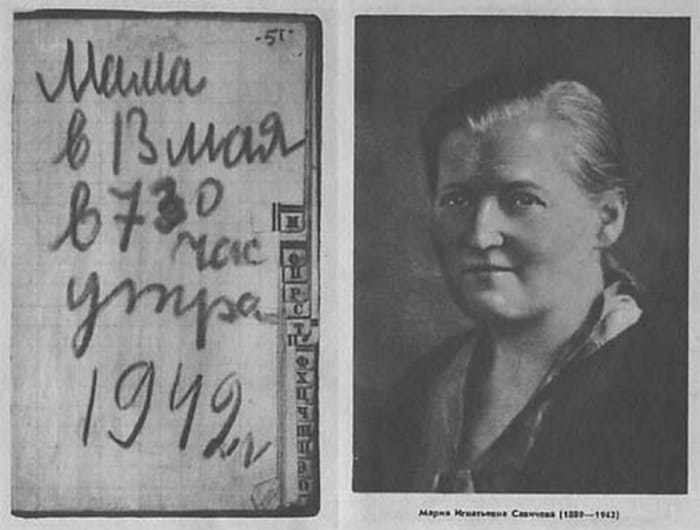 Мама
в 13 мая
в 7 30
час
утра
1942 г
М
О
П
Р
С
Т
Ф
Х
Ц
Ч
Ш
Щ
Мария Игнатьевна Савичева (1889—1942)